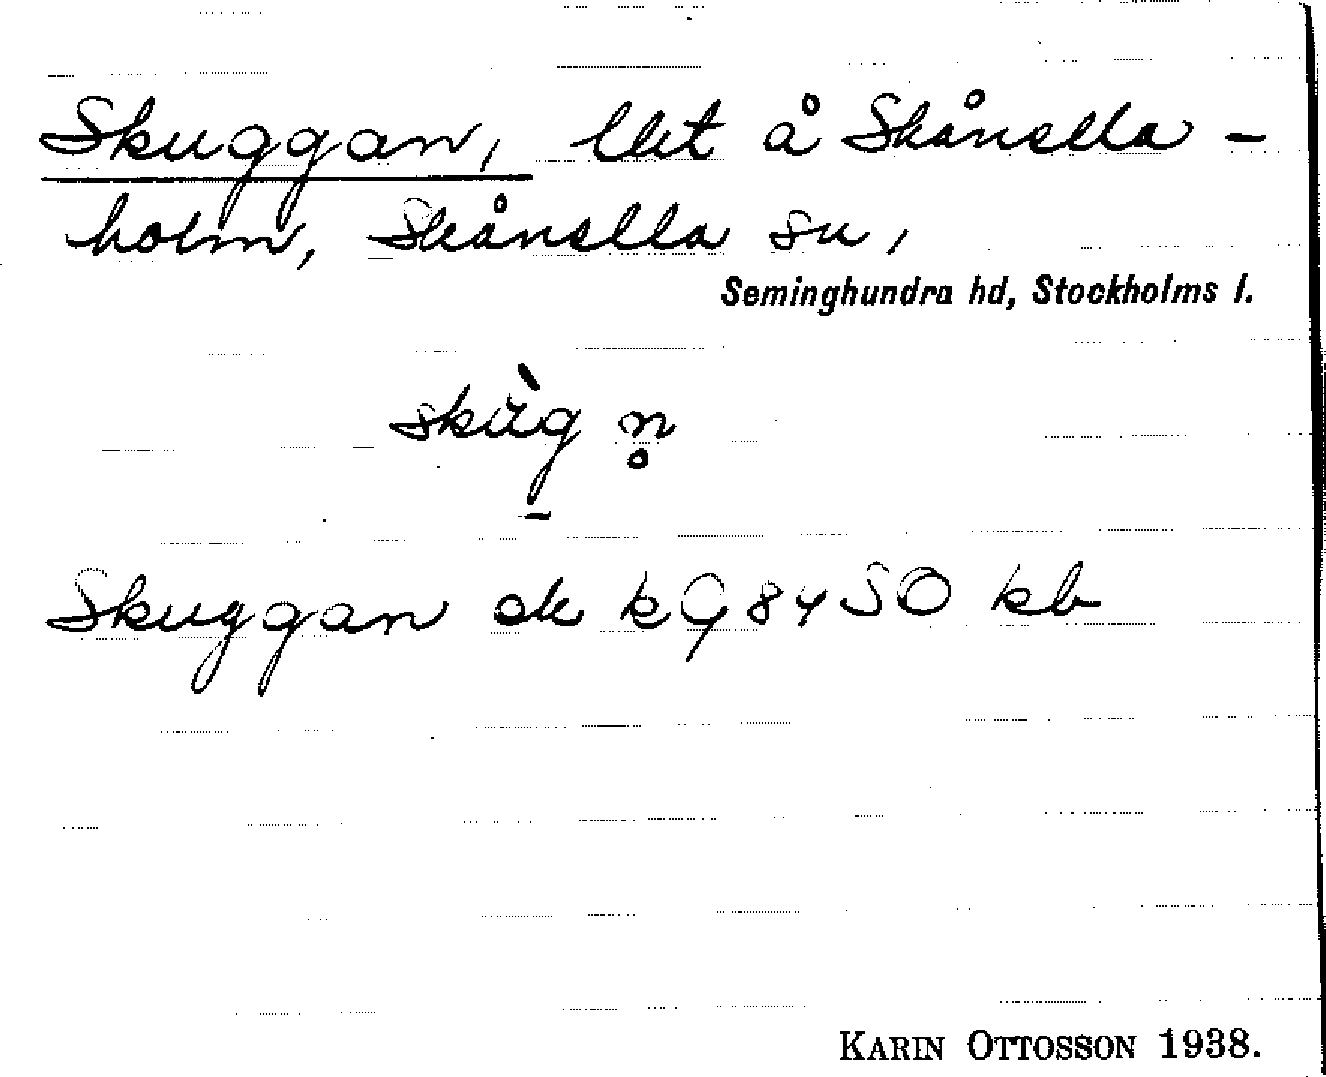 Skuggan, lht å Skånella-
holm, Skånella sn,
Seminghundra hd, Stockholms l.
skùg n̥
Skuggan ek kG 8450 kb
KARIN OTTOSSON 1938.